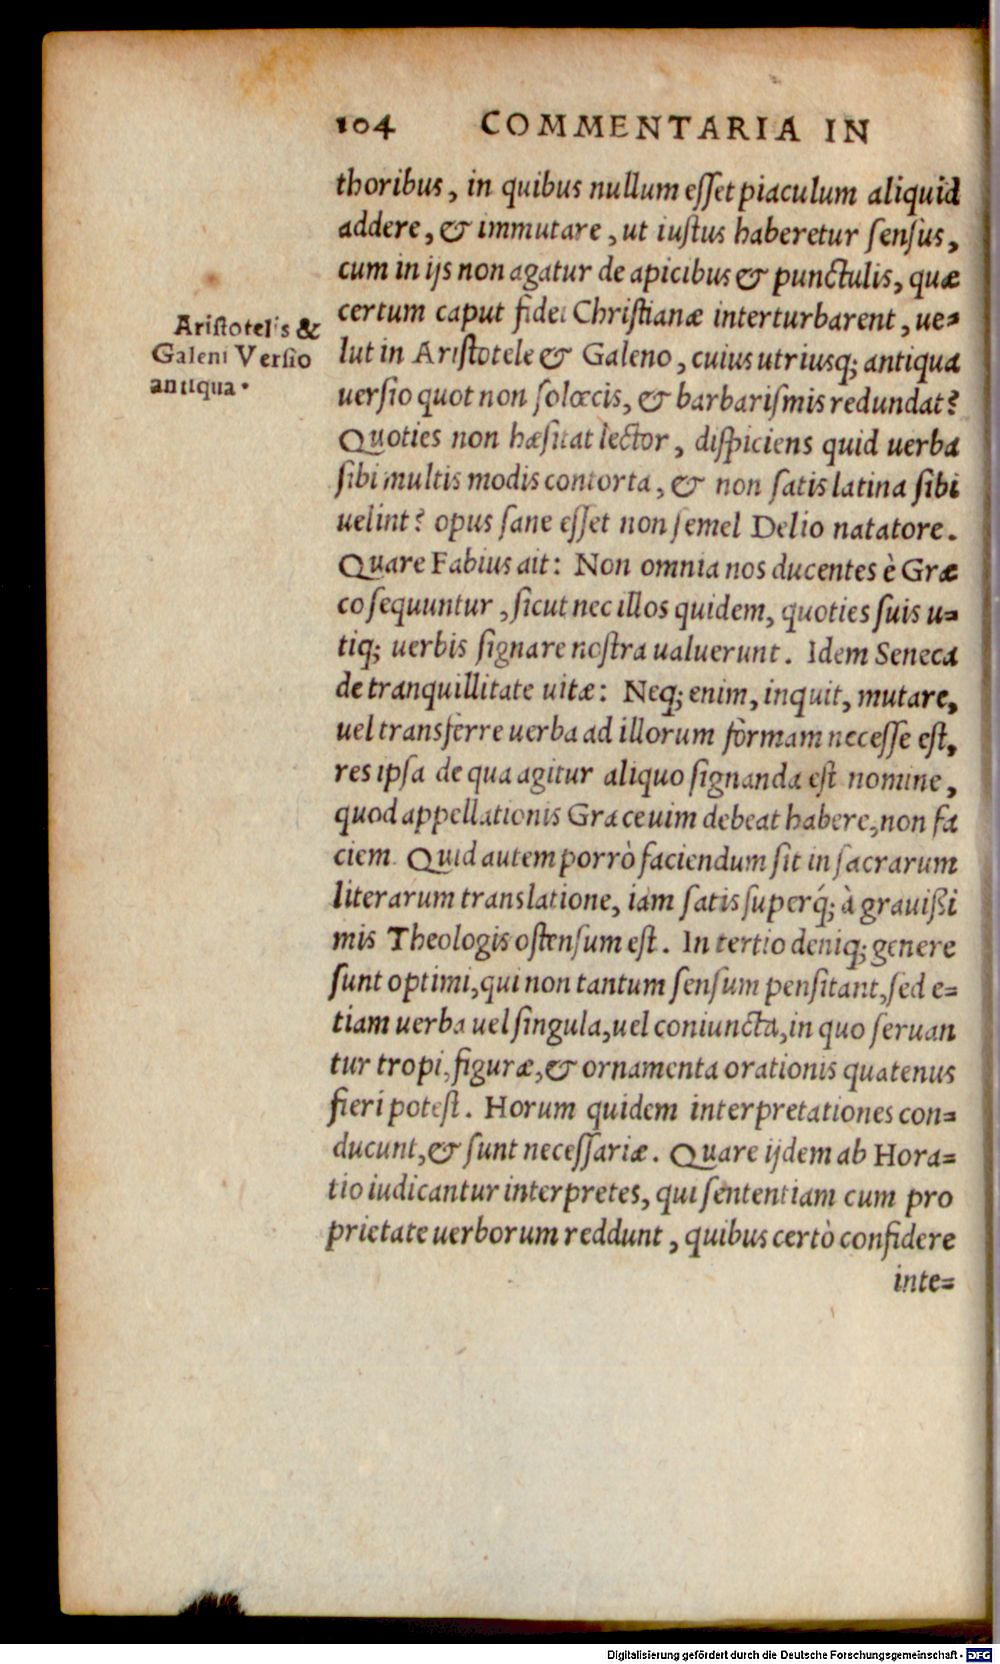 104 COMMENTARIA IN
thoribus, in quibus nullum esset piaculum aliquid
addere, & immutare, ut iustus haberetur sensus,
cum in ijs non agatur de apicibus & punctulis, quæ
certum caput fidei Christianæ interturbarent, ue=
Aristotelis &
Galeni Versio
antiqua.
lut in Aristotele & Galeno, cuius utriusq; antiqua
uersio quot non solœcis, & barbarismis redundat?
Quoties non hæsitat lector, dispiciens quid uerba
sibi multis modis contorta, & non satis latina sibi
uelint? opus sane esset non semel Delio natatore.
Quare Fabius ait: Non omnia nos ducentes è Græ
co sequuntur, sicut nec illos quidem, quoties suis u=
tiq; uerbis signare nostra ualuerunt. Idem Seneca
de tranquillitate uitæ: Neq; enim, inquit, mutare,
uel transferre uerba ad illorum formam necesse est,
res ipsa de qua agitur aliquo signanda est nomine,
quod appellationis Græce uim debeat habere, non fa
ciem. Quid autem porrò faciendum sit in sacrarum
literarum translatione, iam satis superq́; à grauißi
mis Theologis ostensum est. In tertio deniq; genere
sunt optimi, qui non tantum sensum pensitant, sed e=
tiam uerba uel singula, uel coniuncta, in quo seruan
tur tropi, figuræ, & ornamenta orationis quatenus
fieri potest. Horum quidem interpretationes con=
ducunt, & sunt necessariæ. Quare ijdem ab Hora=
tio iudicantur interpretes, qui sententiam cum pro
prietate uerborum reddunt, quibus certò confidere
inte=
Digitalisierung gefördert durch die Deutsche Forschungsgemeinschaft - DFG